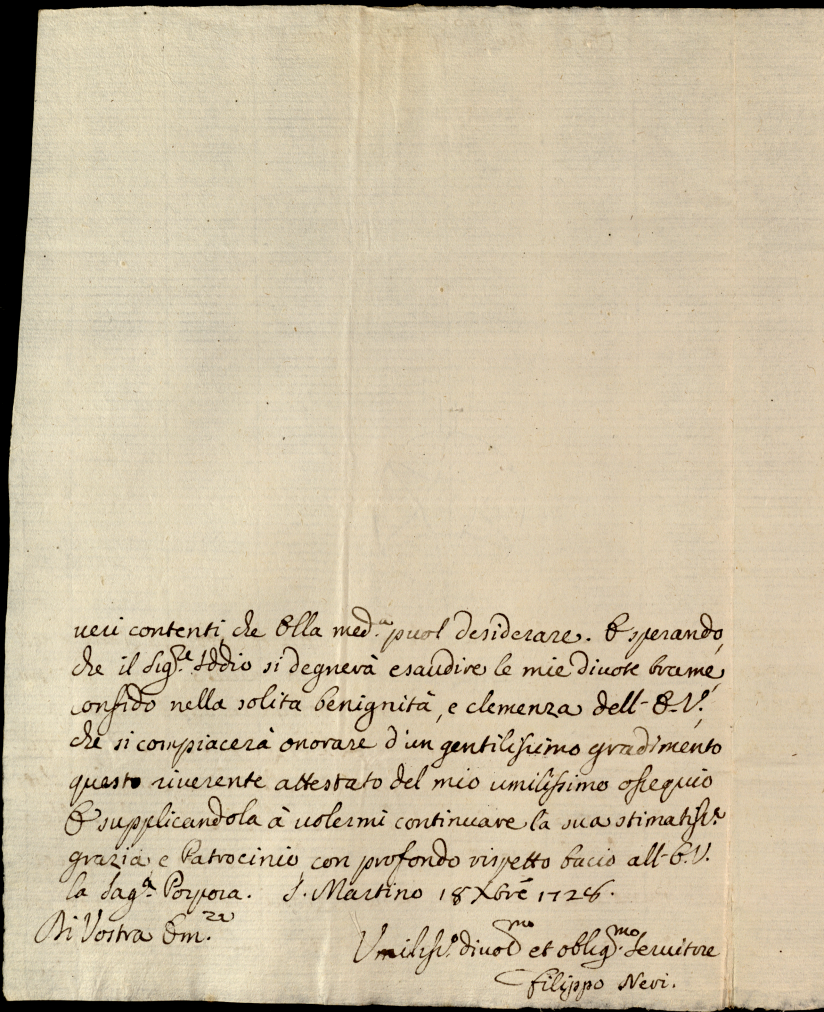 veri contenti, che Ella med.ª puol desiderare. E sperando,
che il Sig.re Iddio si degnerà esaudire le mie divote brame,
confido nella solita benignità, e clemenza dell'E.V.,
che si compiacerà onorare d'un gentilissimo gradimento
questo riverente attestato del mio umilissimo ossequio
E supplicandola à volermi continuare la sua stimatiss.ª
grazia e Patrocinio con profondo rispetto bacio all'E.V.
la Sag.ª Porpora. S. Martino 18 Xbre 1726.
Di Vostra Em.za
Umiliss.º divot.mo et oblig.mo Servitore
Filippo Nevi.